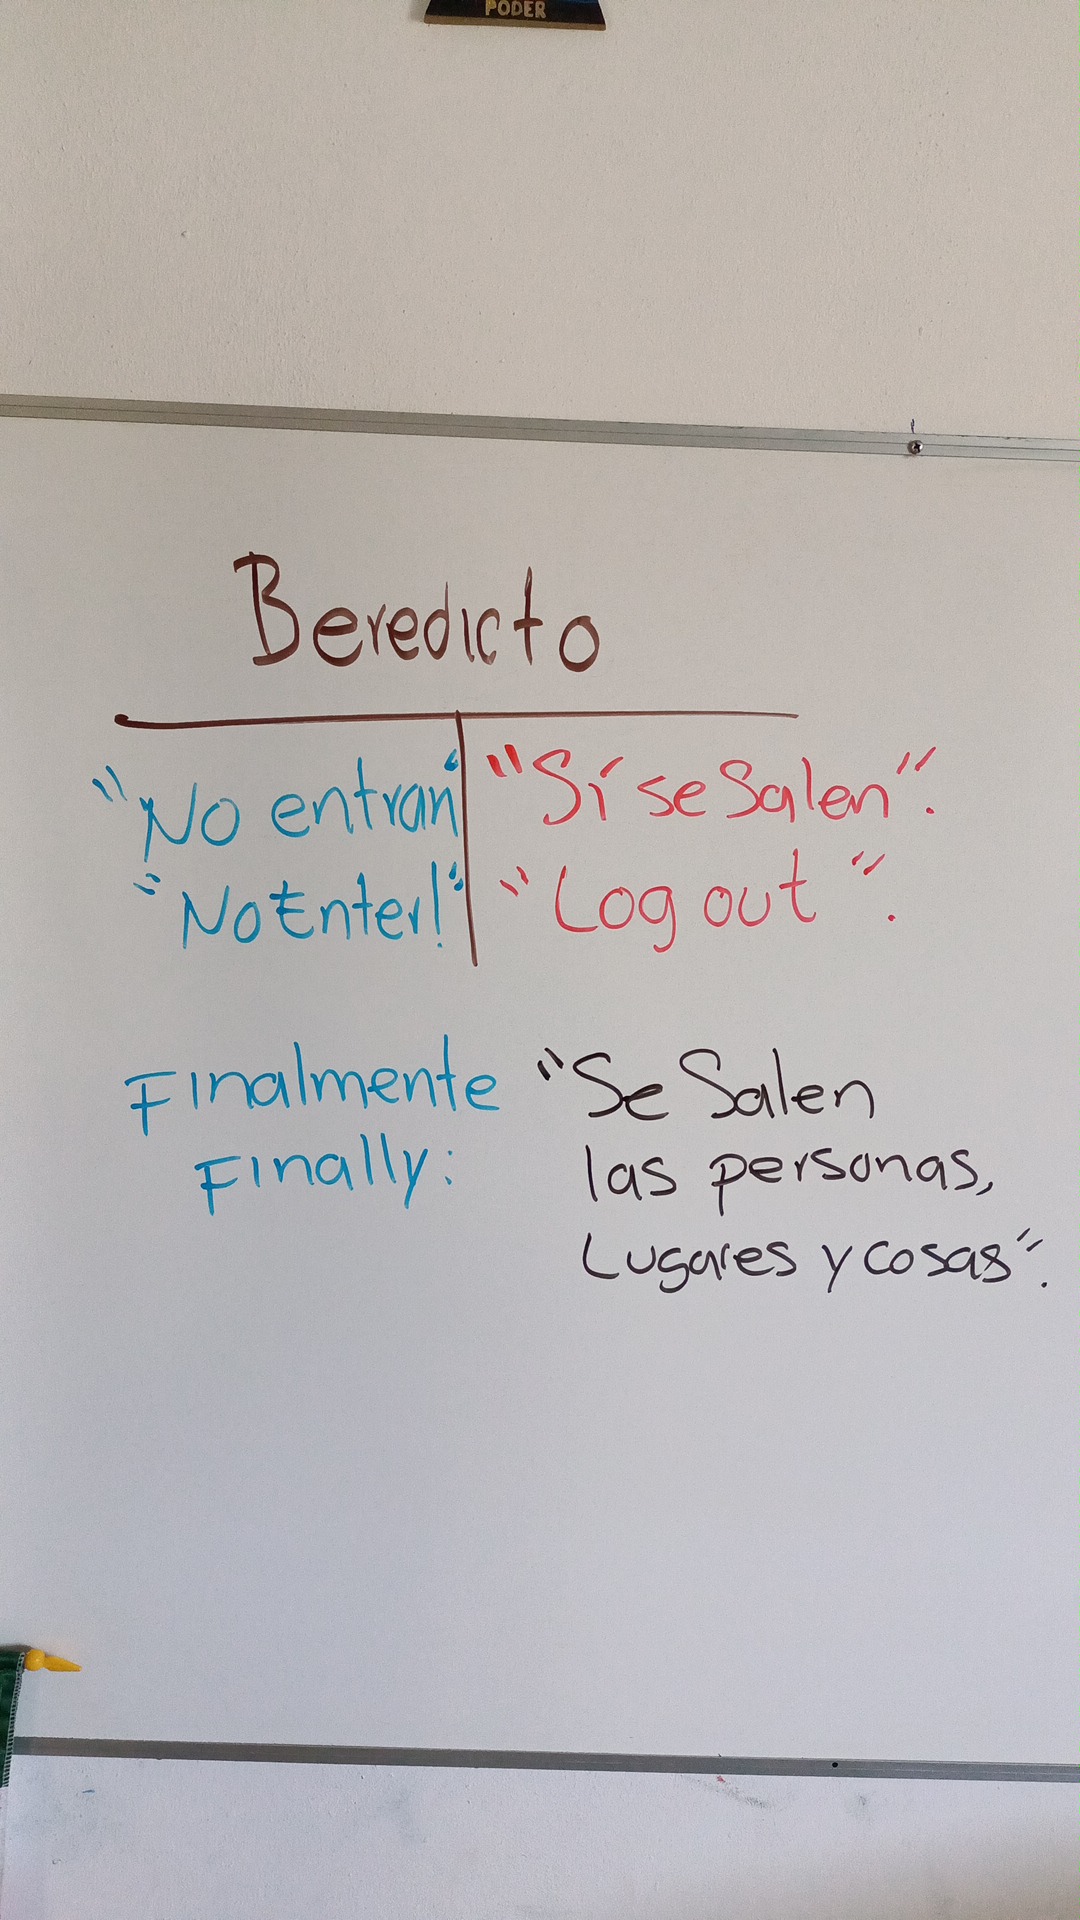 PODER
Beredicto
"No entran" "Sí se Salen".
"No Enter!" "Log out".
Finalmente "Se Salen
Finally: las personas,
Lugares y cosas".